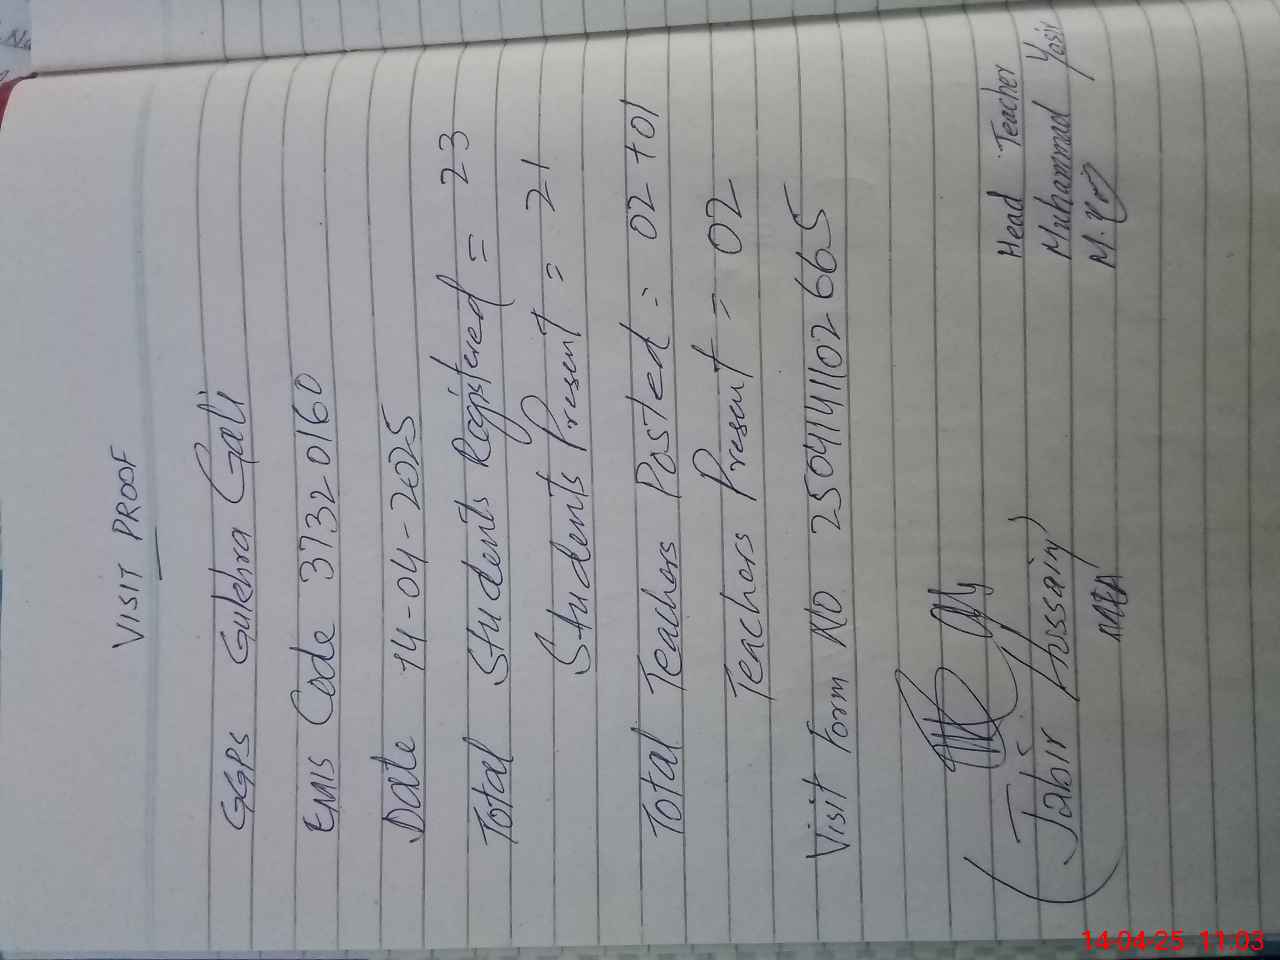 VISIT PROOF
GGPS Gukhra Gali
EMIS Code 37320160
Date 14-04-2025
Total Students Registered = 23
Students Present = 21
Total Teachers Posted = 02+01
Teachers Present = 02
Visit Form No 2504141102665
Head Teacher
Muhammad Yasir
(Jabir Hussain)
MEA
14-04-25 11:03